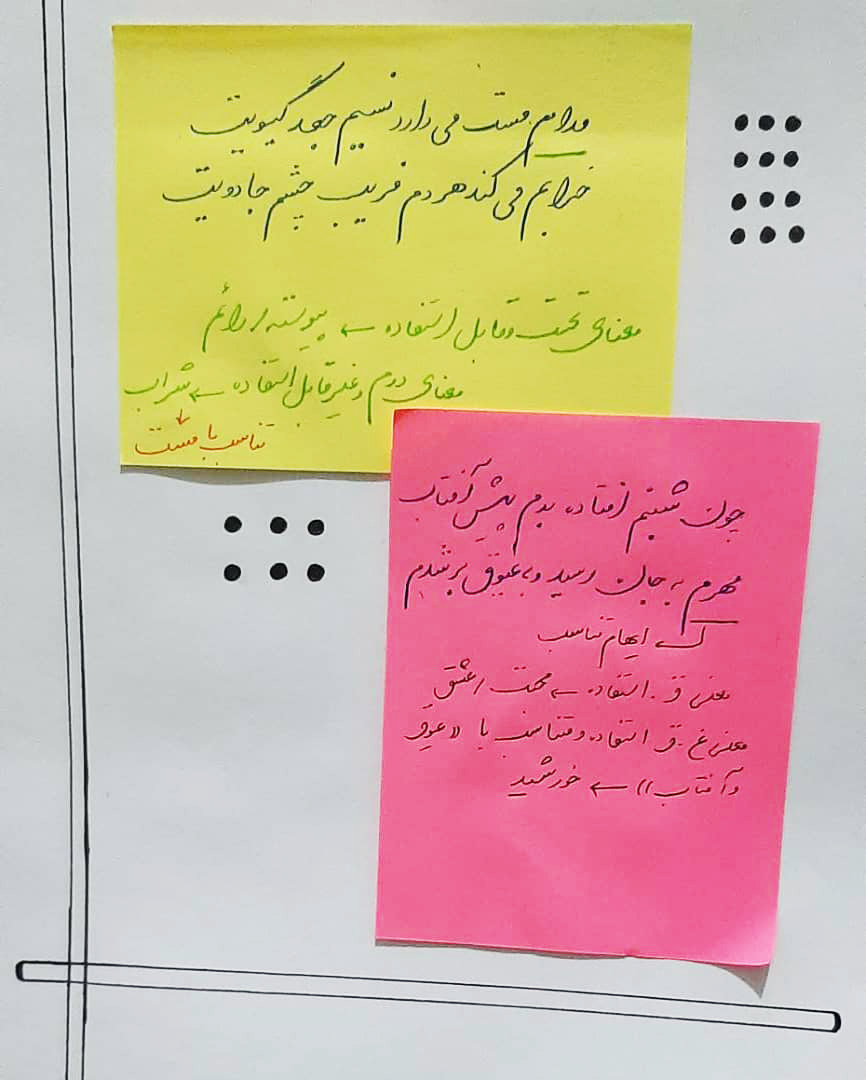 مدامم مست می دارد نسیم جعد گیسویت
خرابم می کند هر دم فریب چشم جادویت
معنای تحت و قابل استفاده ← پیوسته / دائم
معنای دوم و غیرقابل استفاده ← شراب
↓
تناسب با مست
چون شبنم افتاده بدم پیش آفتاب
مهرم به جان رسید و به عیوق بر شدم
← ایهام تناسب
معنی ق. استفاده ← محبت / عشق
معنی غ. ق استفاده و متناسب با «عیوق
و آفتاب» ← خورشید